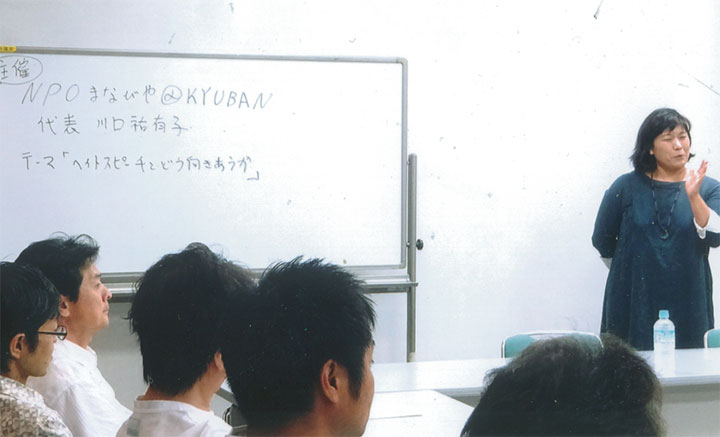 主催
NPO まなびや@KYUBAN
代表 川口祐有子
テーマ「ヘイトスピーチとどう向きあうか」